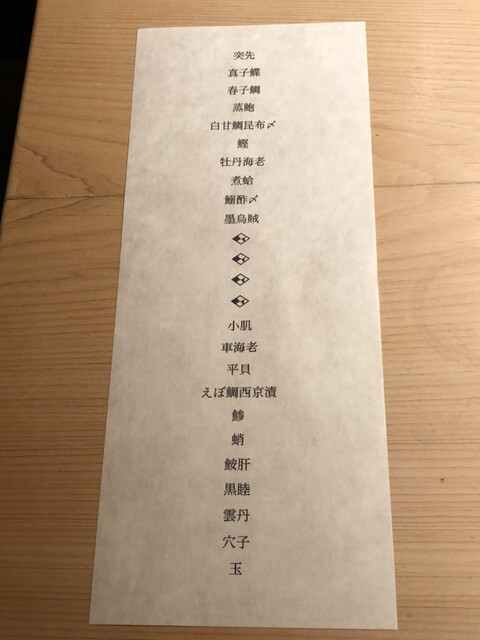 突先
真子鰈
春子鯛
蒸鮑
白甘鯛昆布〆
鰹
牡丹海老
煮蛤
鰯酢〆
墨烏賊
小肌
車海老
平貝
えぼ鯛西京漬
鯵
蛸
鮟肝
黒睦
雲丹
穴子
玉